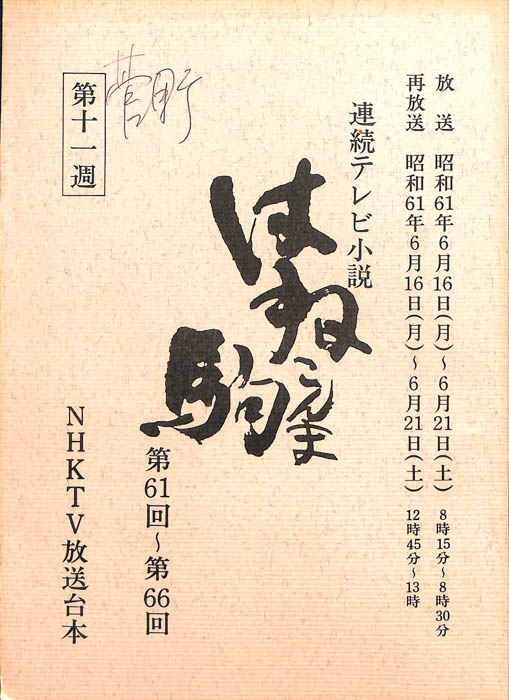 放送　昭和61年6月16日(月)～6月21日(土)　8時15分～8時30分
再放送　昭和61年6月16日(月)～6月21日(土)　12時45分～13時
連続テレビ小説
はね駒
こんま
第61回～第66回
菅野
第十一週
NHKTV放送台本